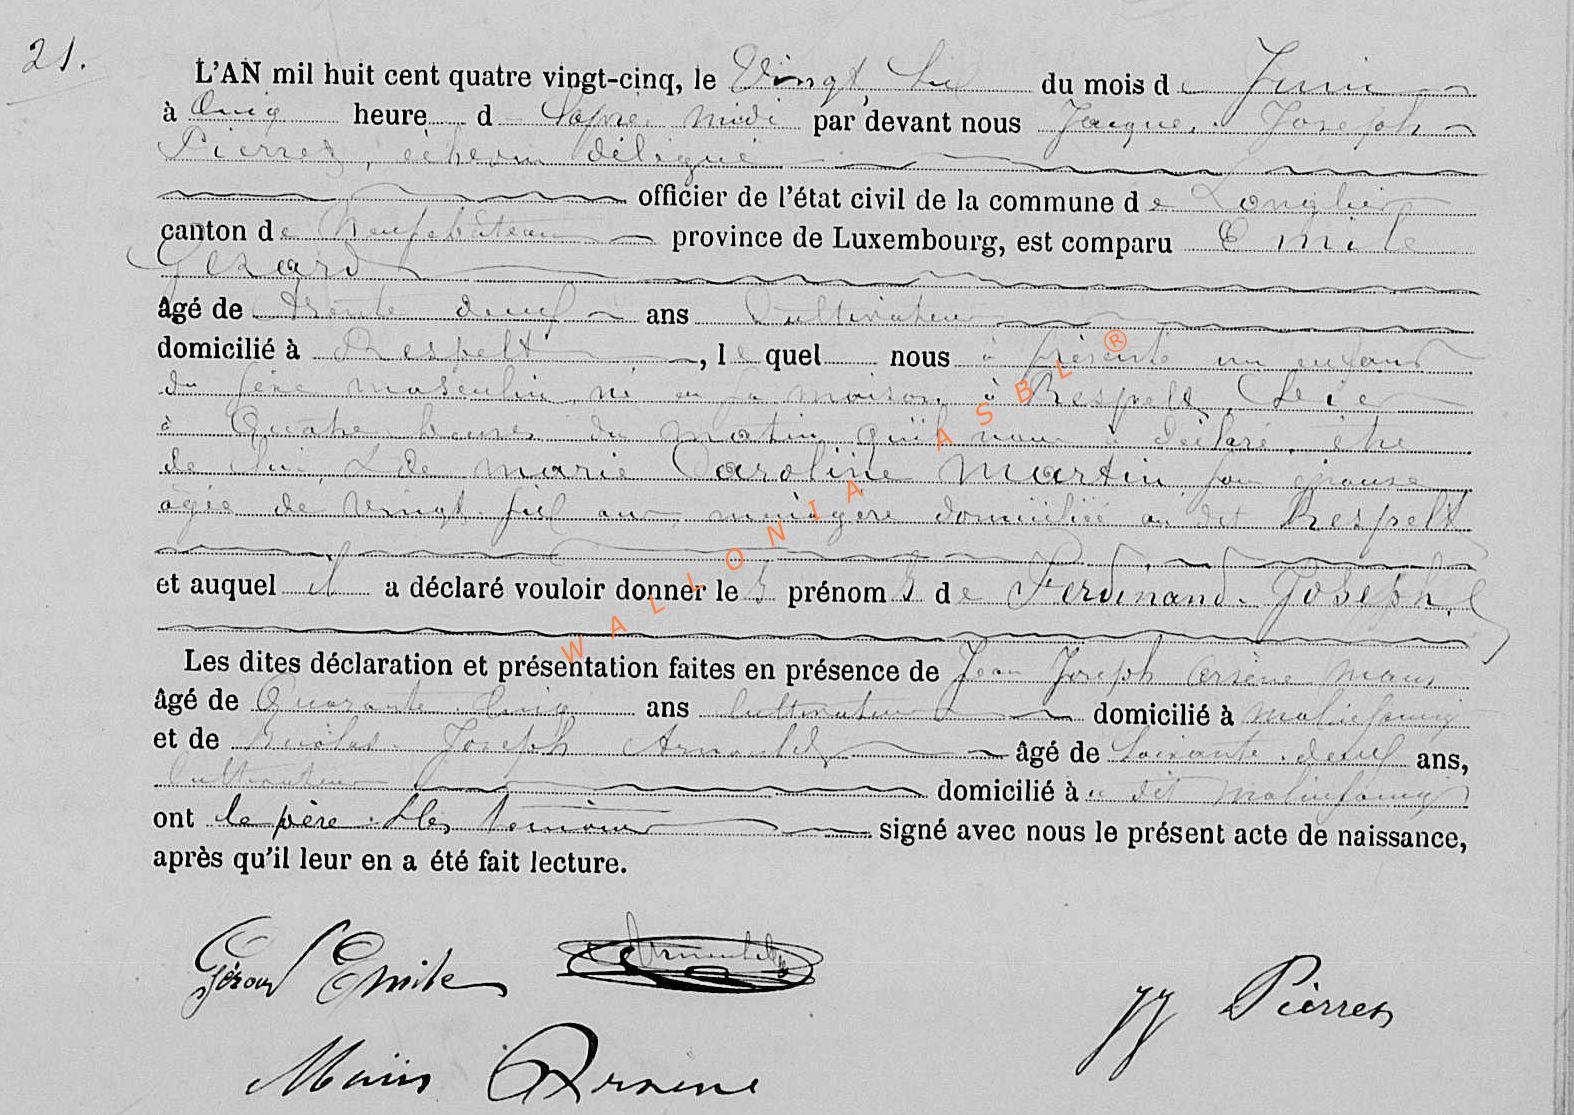 21.
L'AN mil huit cent quatre vingt-cinq, le Vingt Six du mois de Juin
à Cinq heure d L'apre midi par devant nous Jacque. Joseph
Pierret, échevin délégué
officier de l'état civil de la commune de Longlier
canton de Neufchâteau province de Luxembourg, est comparu Emile
Gérard
âgé de trente deux ans Cultivateur
domicilié à Respelt, lequel nous à présenté un enfant
du séxe masculin né en sa maison à Respelt,
à Quatre heures du matin qu'il nous à déclaré être
de lui & de marie Caroline Martin son épouse
agée de vingt six ans ménagère domiciliée au dit Respelt
et auquel il a déclaré vouloir donner les prénoms de Ferdinand. Joseph.
Les dites déclaration et présentation faites en présence de Jean Joseph Arsène Maus
âgé de Quarante Cinq ans Cultivateur domicilié à Molinfaing
et de Nicolas Joseph Arnould âgé de Soixante deux ans,
Cultivateur domicilié à u dit Molinfaing
ont le père & les témoins signé avec nous le présent acte de naissance,
après qu'il leur en a été fait lecture.
Gérard Emile Arnould
JJ Pierret
Maüs Arsene
WALLONIA ASBL ®